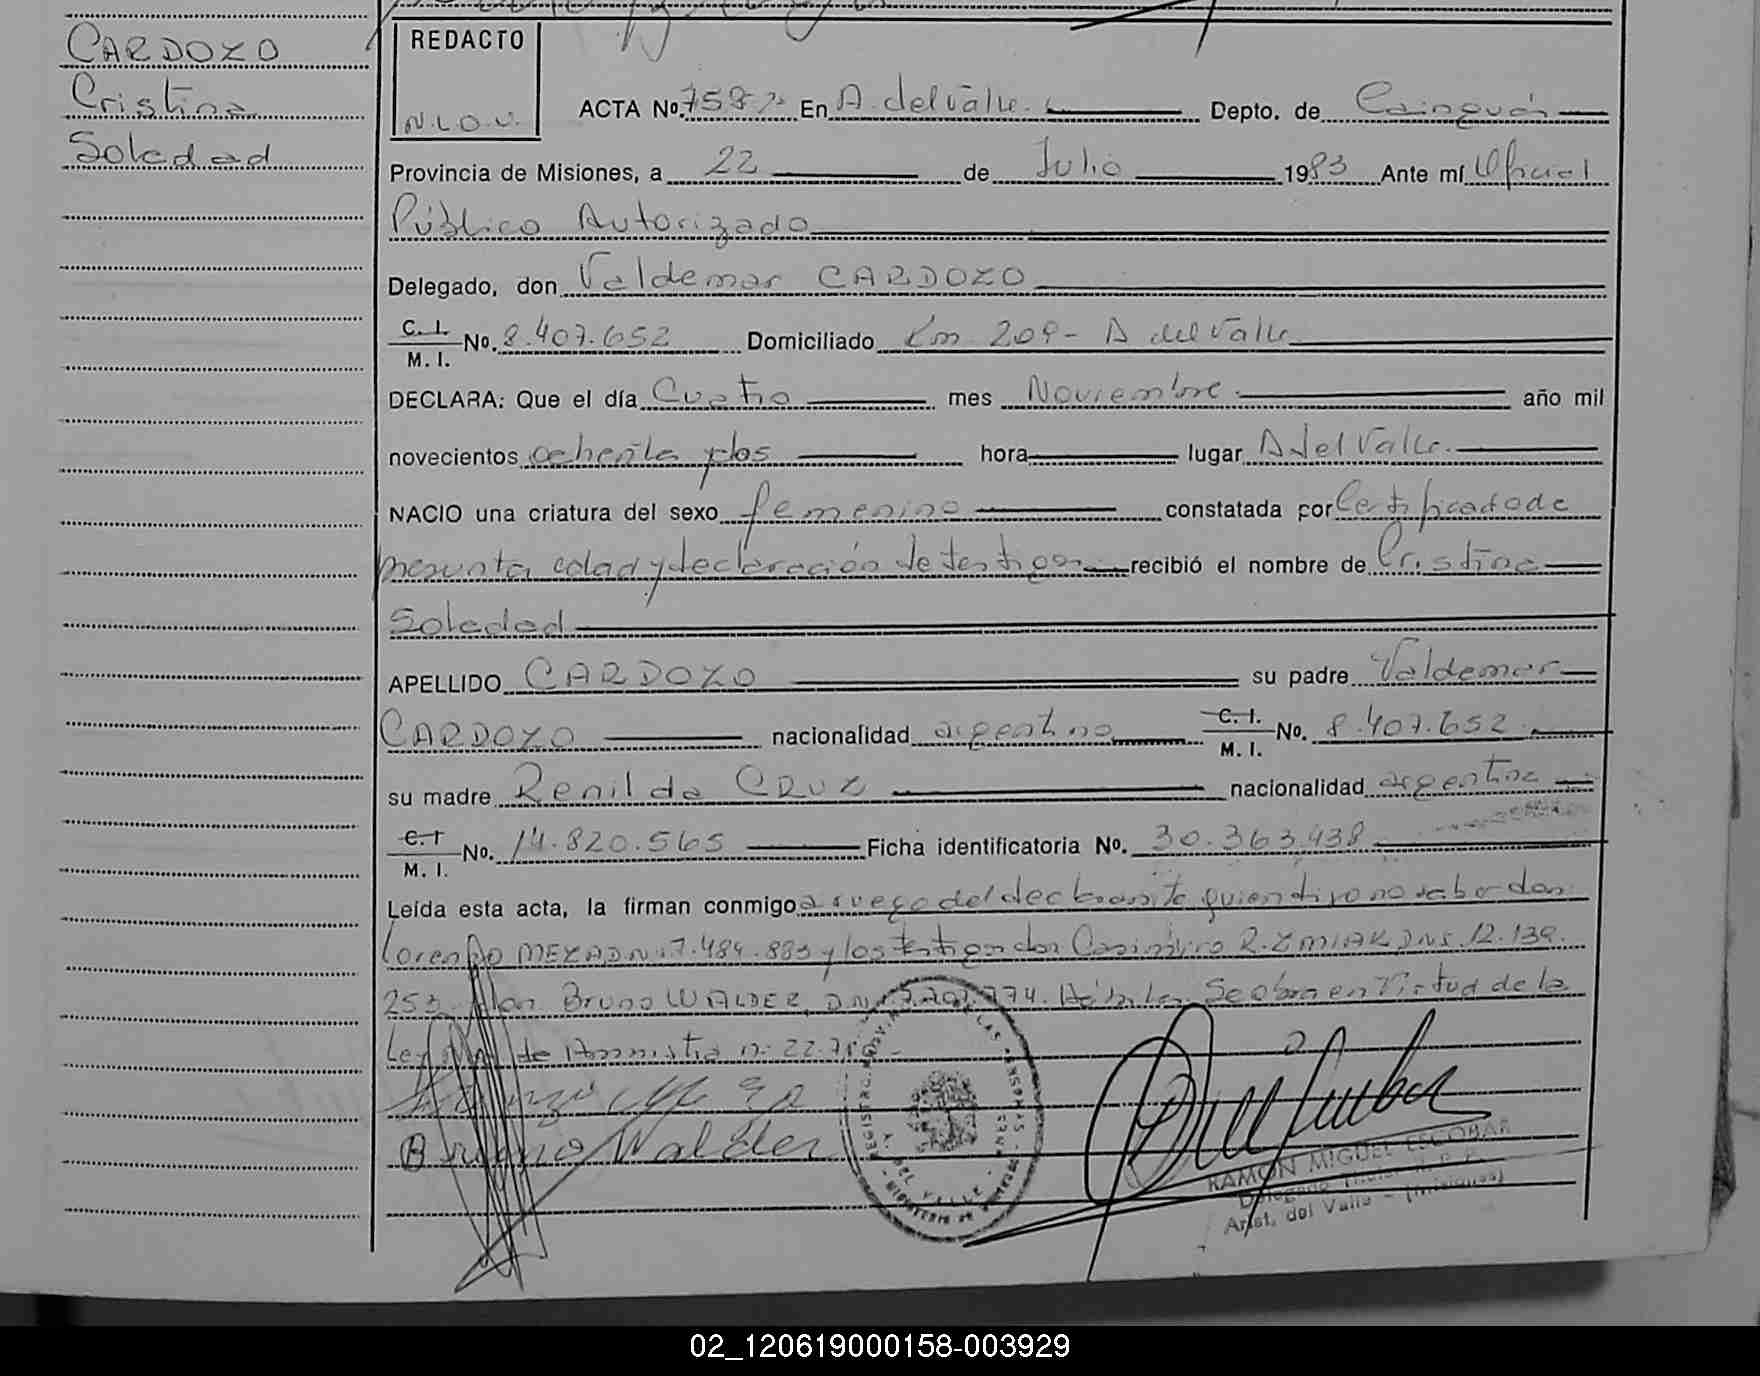 CARDOZO
Cristina
Soledad
REDACTO
N.L.O.V.
ACTA No. 758 En A. del Valle Depto. de Cainguás
Provincia de Misiones, a 22 de Julio 1983 Ante mí Oficial
Público Autorizado
Delegado, don Valdemar CARDOZO
C. I. M. I. No. 8.407.652 Domiciliado Km 209 - A del Valle
DECLARA: Que el día Cuatro mes Noviembre año mil
novecientos ochenta y dos hora lugar A del Valle.
NACIO una criatura del sexo femenino constatada por Certificado de
presunta edad y declaración de testigos recibió el nombre de Cristina
Soledad
APELLIDO CARDOZO su padre Valdemar
CARDOZO nacionalidad argentino C. I. M. I. No. 8.407.652
su madre Renilda CRUZ nacionalidad argentina
C. I M. I. No. 14.820.565 Ficha identificatoria No. 30.363.438
Leída esta acta, la firman conmigo a ruego del declarante quien dijo no saber don
Lorenzo MEZA DNI 7.484.883 y los testigos don Casimiro R. ZMIAK DNI 12.139.
253 don Bruno WALDER, DNI 774. Hábiles. Se labra en Virtud de la
Ley de Amnistia n° 22.
Bruno Walder
REGISTRO PROVINCIAL DE LAS PERSONAS
A. DEL VALLE
RAMON MIGUEL ESCOBAR
Delegado Titular R. P. P.
Arist. del Valle - (Misiones)
02_120619000158-003929